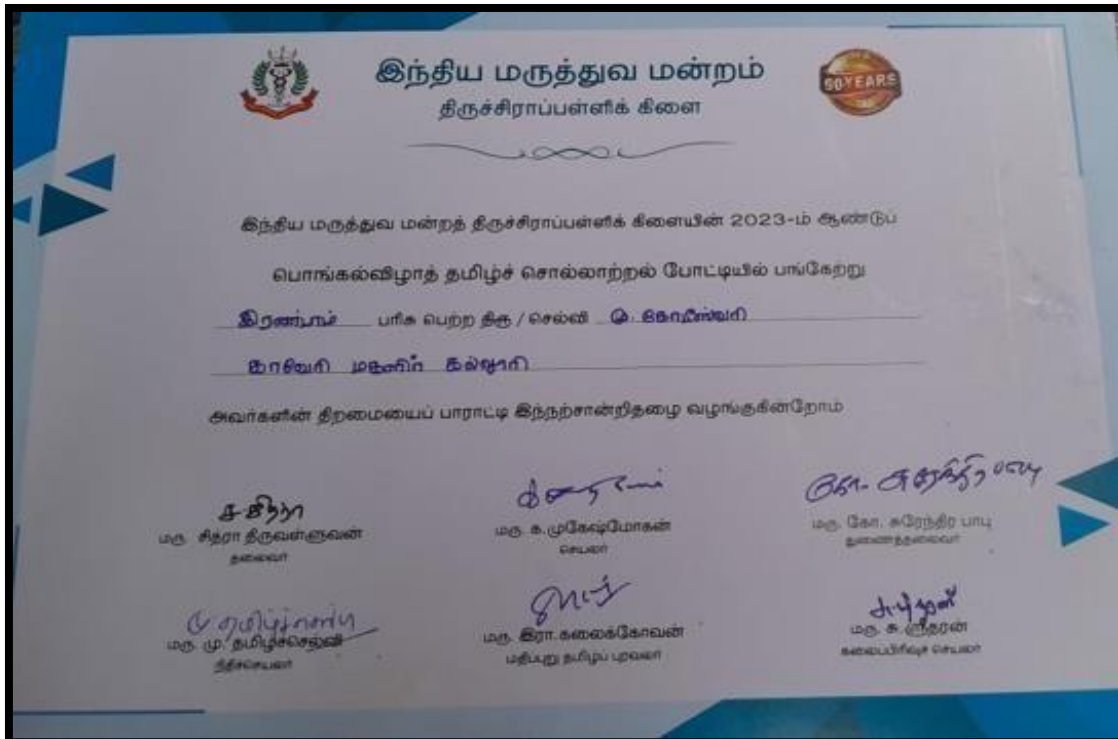 இந்திய மருத்துவ மன்றம்
திருச்சிராப்பள்ளிக் கிளை
50 YEARS
இந்திய மருத்துவ மன்றத் திருச்சிராப்பள்ளிக் கிளையின் 2023-ம் ஆண்டுப்
பொங்கல்விழாத் தமிழ்ச் சொல்லாற்றல் போட்டியில் பங்கேற்று
இரண்டாம் பரிசு பெற்ற திரு / செல்வி
காவேரி மகளிர் கல்லூரி
அவர்களின் திறமையைப் பாராட்டி இந்நற்சான்றிதழை வழங்குகின்றோம்
மரு. சித்ரா திருவள்ளுவன்
தலைவர்
மரு. க.முகேஷ்மோகன்
செயலர்
கோ. சுரேந்திர பாபு
மரு. கோ. சுரேந்திர பாபு
துணைத்தலைவர்
மரு. மு. தமிழ்ச்செல்வி
நிதிச்செயலர்
மரு. இரா.கலைக்கோவன்
மதிப்புறு தமிழ்ப் புரவலர்
மரு. சு. ஸ்ரீதரன்
கலைப்பிரிவுச் செயலர்